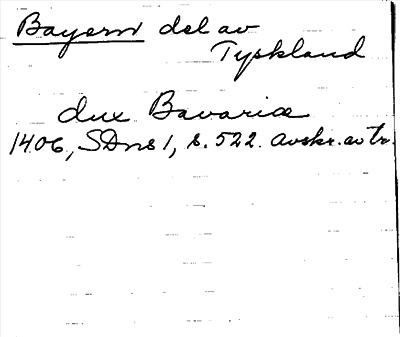 Bayern del av
Tyskland
dux Bavariæ
1406, SDns 1, s. 522. Avskr. av tr.